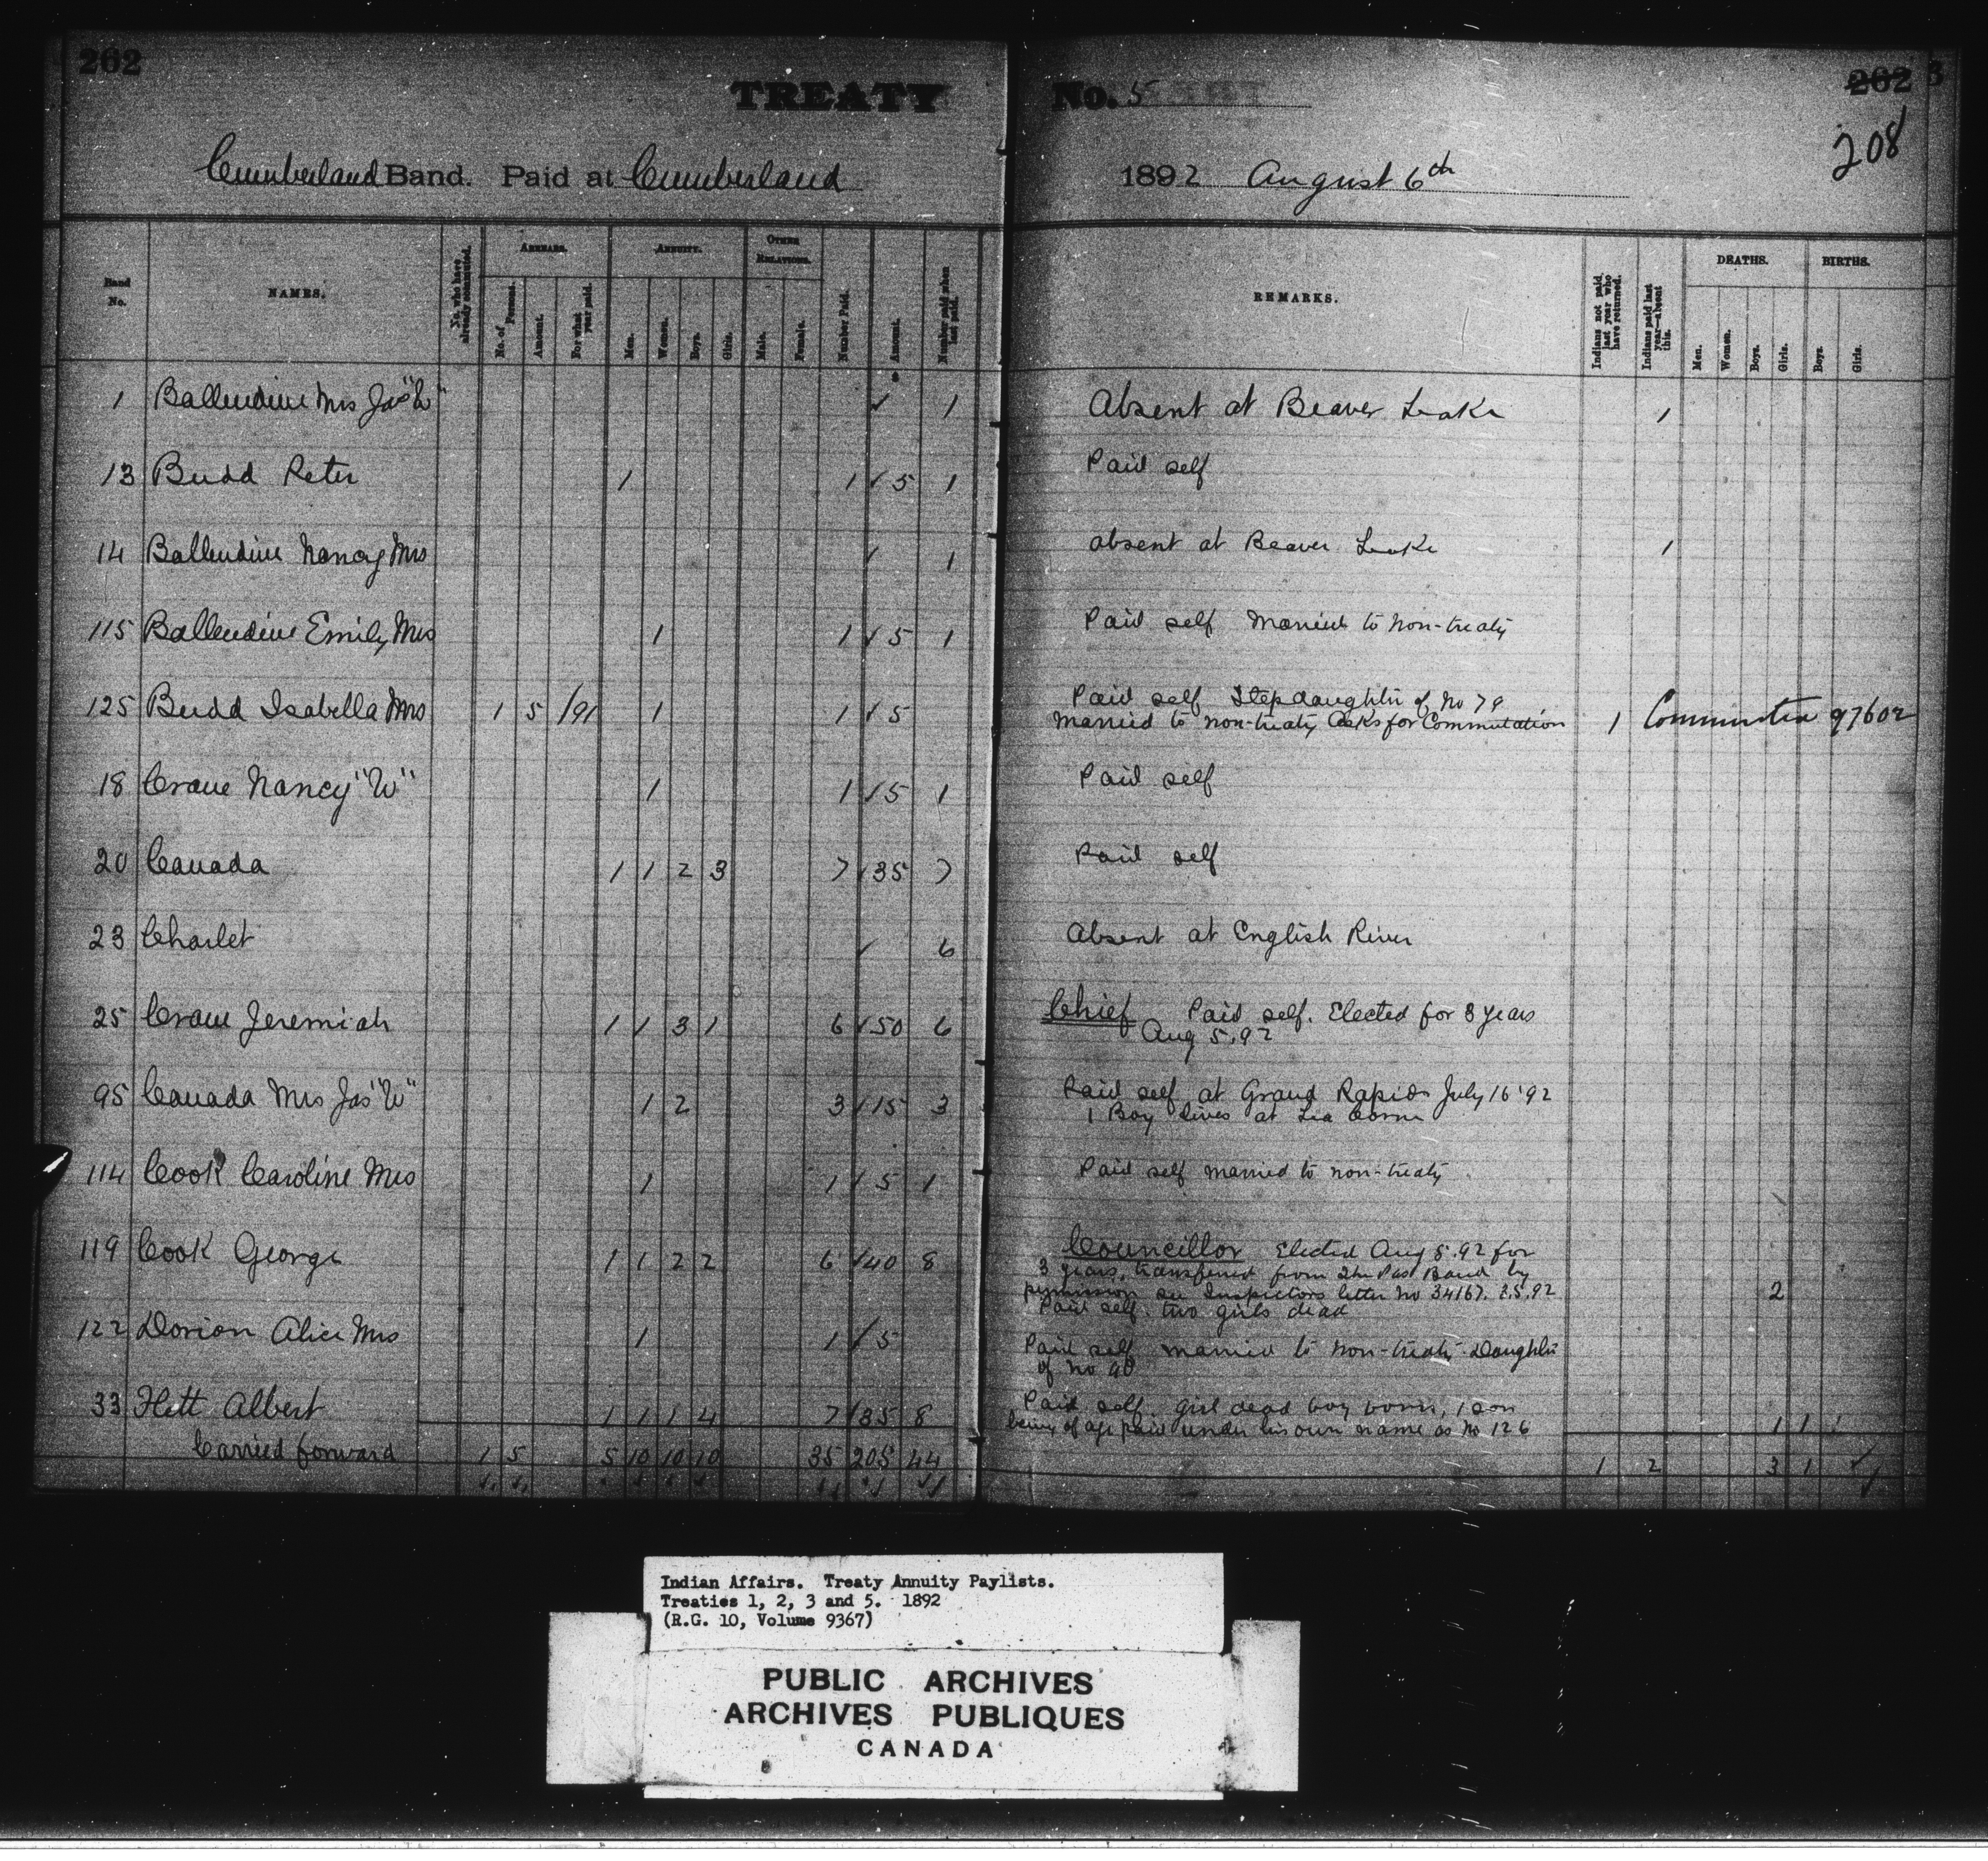 262
TREATY No. 5
262
208
Cumberland Band. Paid at Cumberland 1892 August 6th
Band No. NAMES. No. who have already commuted. ARREARS. No. of Persons. Amount. For what year paid. ANNUITY. Men. Women. Boys. Girls. OTHER RELATIONS. Male. Female. Number Paid. Amount. Number paid when last paid. REMARKS. Indians not paid last year who have returned. Indians paid last year—absent this. DEATHS. Men. Women. Boys. Girls. BIRTHS. Boys. Girls.
1 Ballendine Mrs Jas "W" ✓ 1 Absent at Beaver Lake 1
13 Budd Peter 1 1 ✓ 5 1 Paid self
14 Ballendine Nancy Mrs ✓ 1 absent at Beaver Lake 1
115 Ballendine Emily Mrs 1 1 ✓ 5 1 Paid self Married to non-treaty
125 Budd Isabella Mrs 1 5 /91 1 1 ✓ 5 Paid self Stepdaughter of No 79
Married to non-treaty Asks for Commutation 1 97602
18 Crane Nancy "W" 1 1 ✓ 5 1 Paid self
20 Canada 1 1 2 3 7 ✓ 35 7 Paid self
23 Charlet ✓ 6 Absent at English River
25 Crane Jeremiah 1 1 3 1 6 ✓ 50 6 Chief Paid self. Elected for 3 years
Aug 5.92
95 Canada Mrs Jas "W" 1 2 3 ✓ 15 3 Paid self at Grand Rapids July 16 '92
1 Boy lives at
114 Cook Caroline Mrs 1 1 ✓ 5 1 Paid self married to non-treaty
119 Cook George 1 1 2 2 6 ✓ 40 8 Councillor Elected Aug 5.92 for
3 years, transferred from The Pas Band by
permission see Inspectors letter No 34167. 2.5.92 2
Paid self. two girls dead
122 Dorion Alice Mrs 1 1 ✓ 5 Paid self married to non-treaty. Daughter
of No 90
33 Flett Albert 1 1 1 4 7 ✓ 35 8 Paid self. girl dead boy born, 1 son
being of age paid under his own name as No 126 1 1
Carried forward 1 5 5 10 10 10 35 205 44 1 2 3 1 ✓
Indian Affairs. Treaty Annuity Paylists.
Treaties 1, 2, 3 and 5. 1892
(R.G. 10, Volume 9367)
PUBLIC ARCHIVES
ARCHIVES PUBLIQUES
CANADA